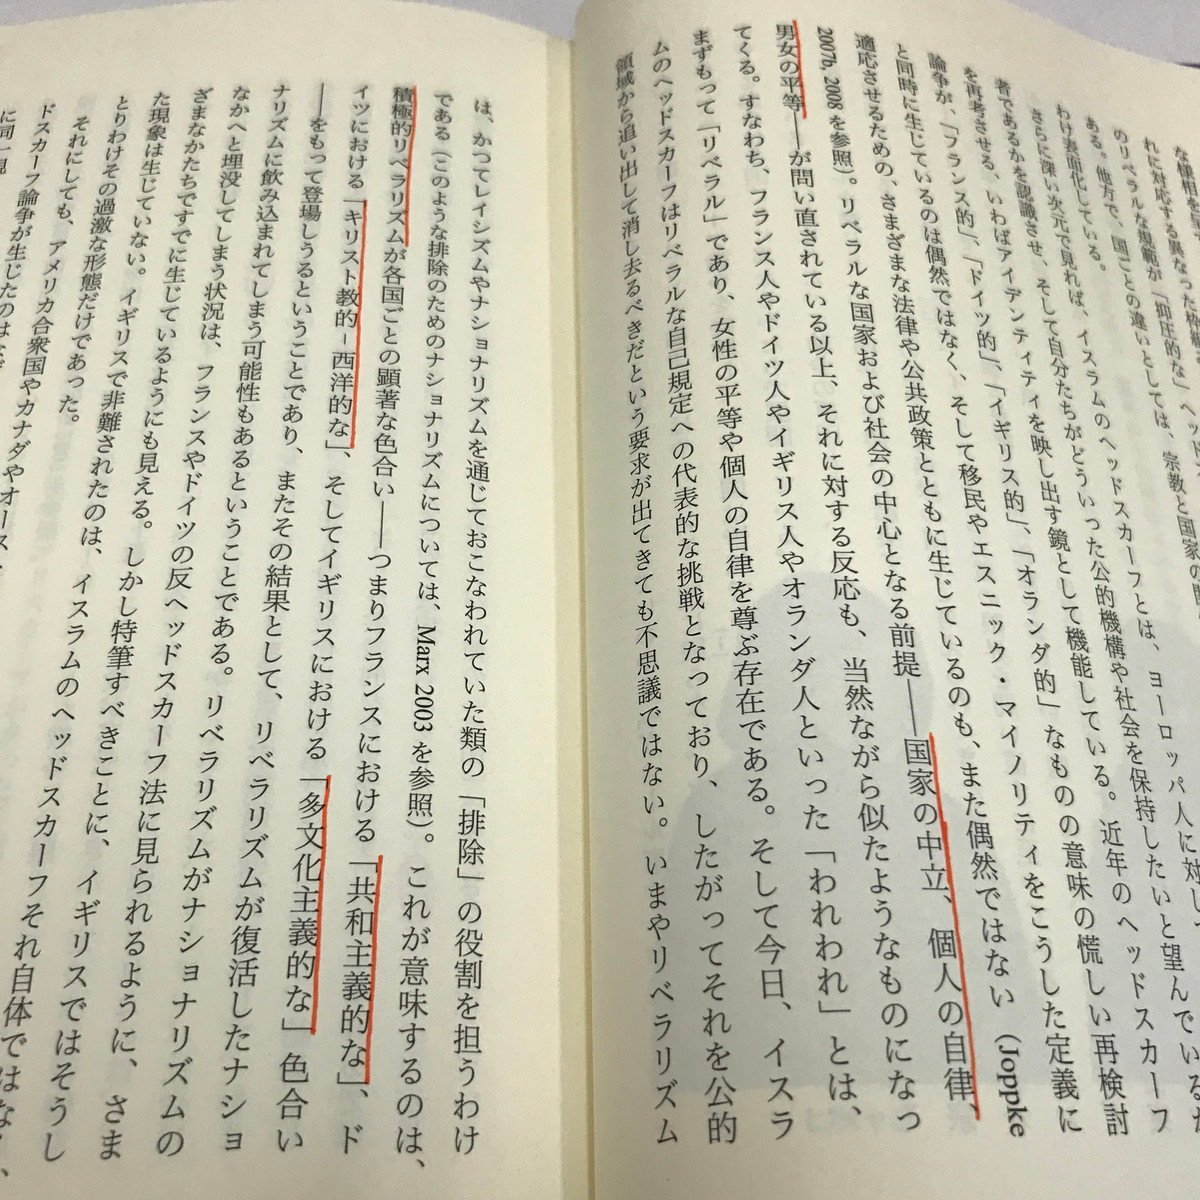 な様相を
れに対応する異なった
のリベラルな規範が「抑圧的な」ヘッド
ある。他方で、国ごとの違いとしては、宗教と国家の
わけ表面化している。
さらに深い次元で見れば、イスラムのヘッドスカーフとは、ヨーロッパ人に対し
者であるかを認識させ、そして自分たちがどういった公的機構や社会を保持したいと望んでいるか
を再考させる、いわばアイデンティティを映し出す鏡として機能している。近年のヘッドスカーフ
論争が、「フランス的」、「ドイツ的」、「イギリス的」、「オランダ的」なものの意味の慌しい再検討
と同時に生じているのは偶然ではなく、そして移民やエスニック・マイノリティをこうした定義に
適応させるための、さまざまな法律や公共政策とともに生じているのも、また偶然ではない（Joppke
2007b, 2008 を参照）。リベラルな国家および社会の中心となる前提——国家の中立、個人の自律、
男女の平等——が問い直されている以上、それに対する反応も、当然ながら似たようなものになっ
てくる。すなわち、フランス人やドイツ人やイギリス人やオランダ人といった「われわれ」とは、
まずもって「リベラル」であり、女性の平等や個人の自律を尊ぶ存在である。そして今日、イスラ
ムのヘッドスカーフはリベラルな自己規定への代表的な挑戦となっており、したがってそれを公的
領域から追い出して消し去るべきだという要求が出てきても不思議ではない。いまやリベラリズム
は、かつてレイシズムやナショナリズムを通じておこなわれていた類の「排除」の役割を担うわけ
である（このような排除のためのナショナリズムについては、Marx 2003 を参照）。これが意味するのは、
積極的リベラリズムが各国ごとの顕著な色合い——つまりフランスにおける「共和主義的な」、ド
イツにおける「キリスト教的－西洋的な」、そしてイギリスにおける「多文化主義的な」色合い
——をもって登場しうるということであり、またその結果として、リベラリズムが復活したナショ
ナリズムに飲み込まれてしまう可能性もあるということである。リベラリズムがナショナリズムの
なかへと埋没してしまう状況は、フランスやドイツの反ヘッドスカーフ法に見られるように、さま
ざまなかたちですでに生じているようにも見える。しかし特筆すべきことに、イギリスではそうし
た現象は生じていない。イギリスで非難されたのは、イスラムのヘッドスカーフそれ自体ではなく、
とりわけその過激な形態だけであった。
それにしても、アメリカ合衆国やカナダやオース
ドスカーフ論争が生じたのは
に同一視